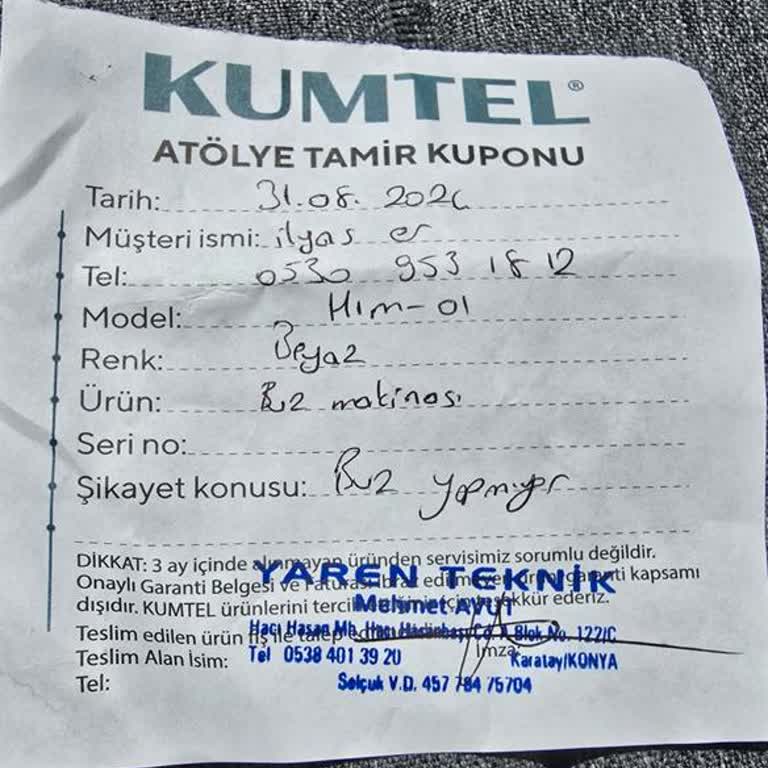 KUMTEL®
ATÖLYE TAMİR KUPONU
Tarih: 31.08.202
Müşteri ismi: ilyas er
Tel: 0530 953 18 12
Model: Hım-01
Renk: Beyaz
Ürün: Buz makinası
Seri no:
Şikayet konusu: Buz yapmıyor
DİKKAT: 3 ay içinde alınmayan üründen servisimiz sorumlu değildir.
Onaylı Garanti Belgesi ve Faturası ibraz edilmeyen ürün garanti kapsamı
dışıdır. KUMTEL ürünlerini tercih için teşekkür ederiz.
YAREN TEKNİK
Mehmet AVUT
Teslim edilen ürün fiş ile talep
Hacı Hasan Mh. Hacı Hasanbaşı Cd. A Blok No. 122/C
Teslim Alan İsim: İmza:
Tel 0538 401 39 20 Karatay/KONYA
Tel:
Selçuk V.D. 457 784 75704